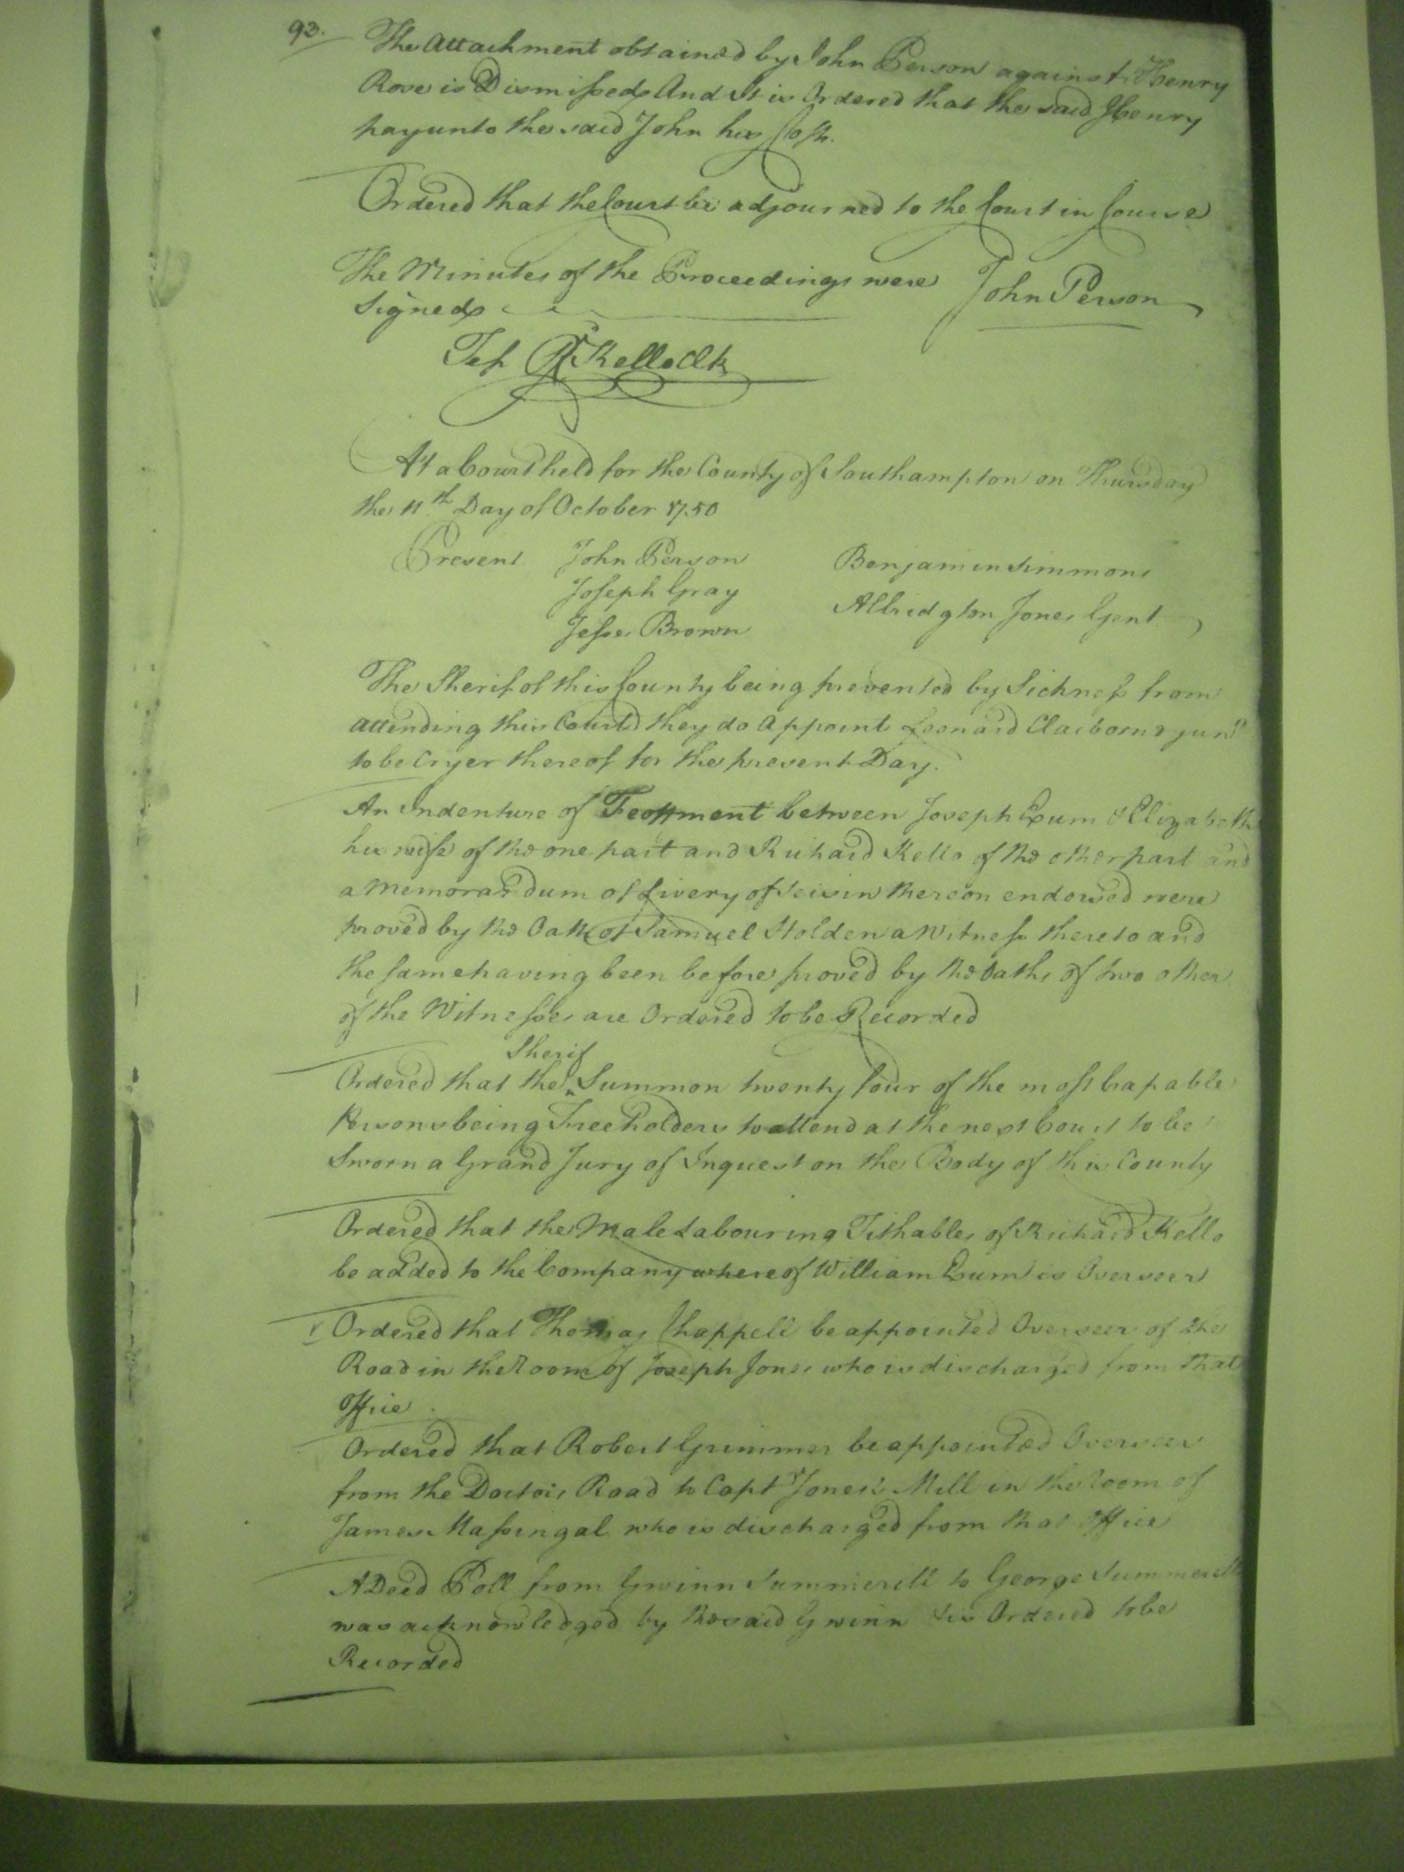 93.
The Attachment obtained by John Person against Henry
Rose is Dismissed And It is Ordered that the said Henry
pay unto the said John his Costs.
Ordered that the Court be adjourned to the Court in Course
The Minutes of the Proceedings were
Signed
John Person
Test R Kello Clk
At a Court held for the County of Southampton on Thursday
the 11th Day of October 1750
Present John Person
Joseph Gray
Jesse Brown
Benjamin Simmons
Albridgton Jones Gent
The Sherif of this County being prevented by Sickness from
attending this Court they do Appoint Leonard Claiborne junr
to be Cryer thereof for the present Day.
An Indenture of Feoffment between Joseph Exum & Elizabeth
his wife of the one part and Richard Kello of the other part and
a Memorandum of Livery of Seisin thereon endorsed were
proved by the Oath of Samuel Holden a Witness thereto and
the same having been before proved by the Oaths of two other
of the Witnesses are Ordered to be Recorded
Ordered that the Sherif Summon twenty four of the most Capable
Persons being Freeholders to attend at the next Court to be
Sworn a Grand Jury of Inquest on the Body of this County
Ordered that the Male Labouring Tithables of Richard Kello
be added to the Company whereof William Exum is Overseer
Ordered that Thomas Chappell be appointed Overseer of the
Road in the Room of Joseph Jones who is discharged from that
Office.
Ordered that Robert Grimmer be appointed Overseer
from the Doctors Road to Capt Jones's Mill in the room of
James Massingal who is discharged from that Office
A Deed Poll from Gwinn Summerell to George Summerell
was acknowledged by the said Gwinn & is Ordered to be
Recorded